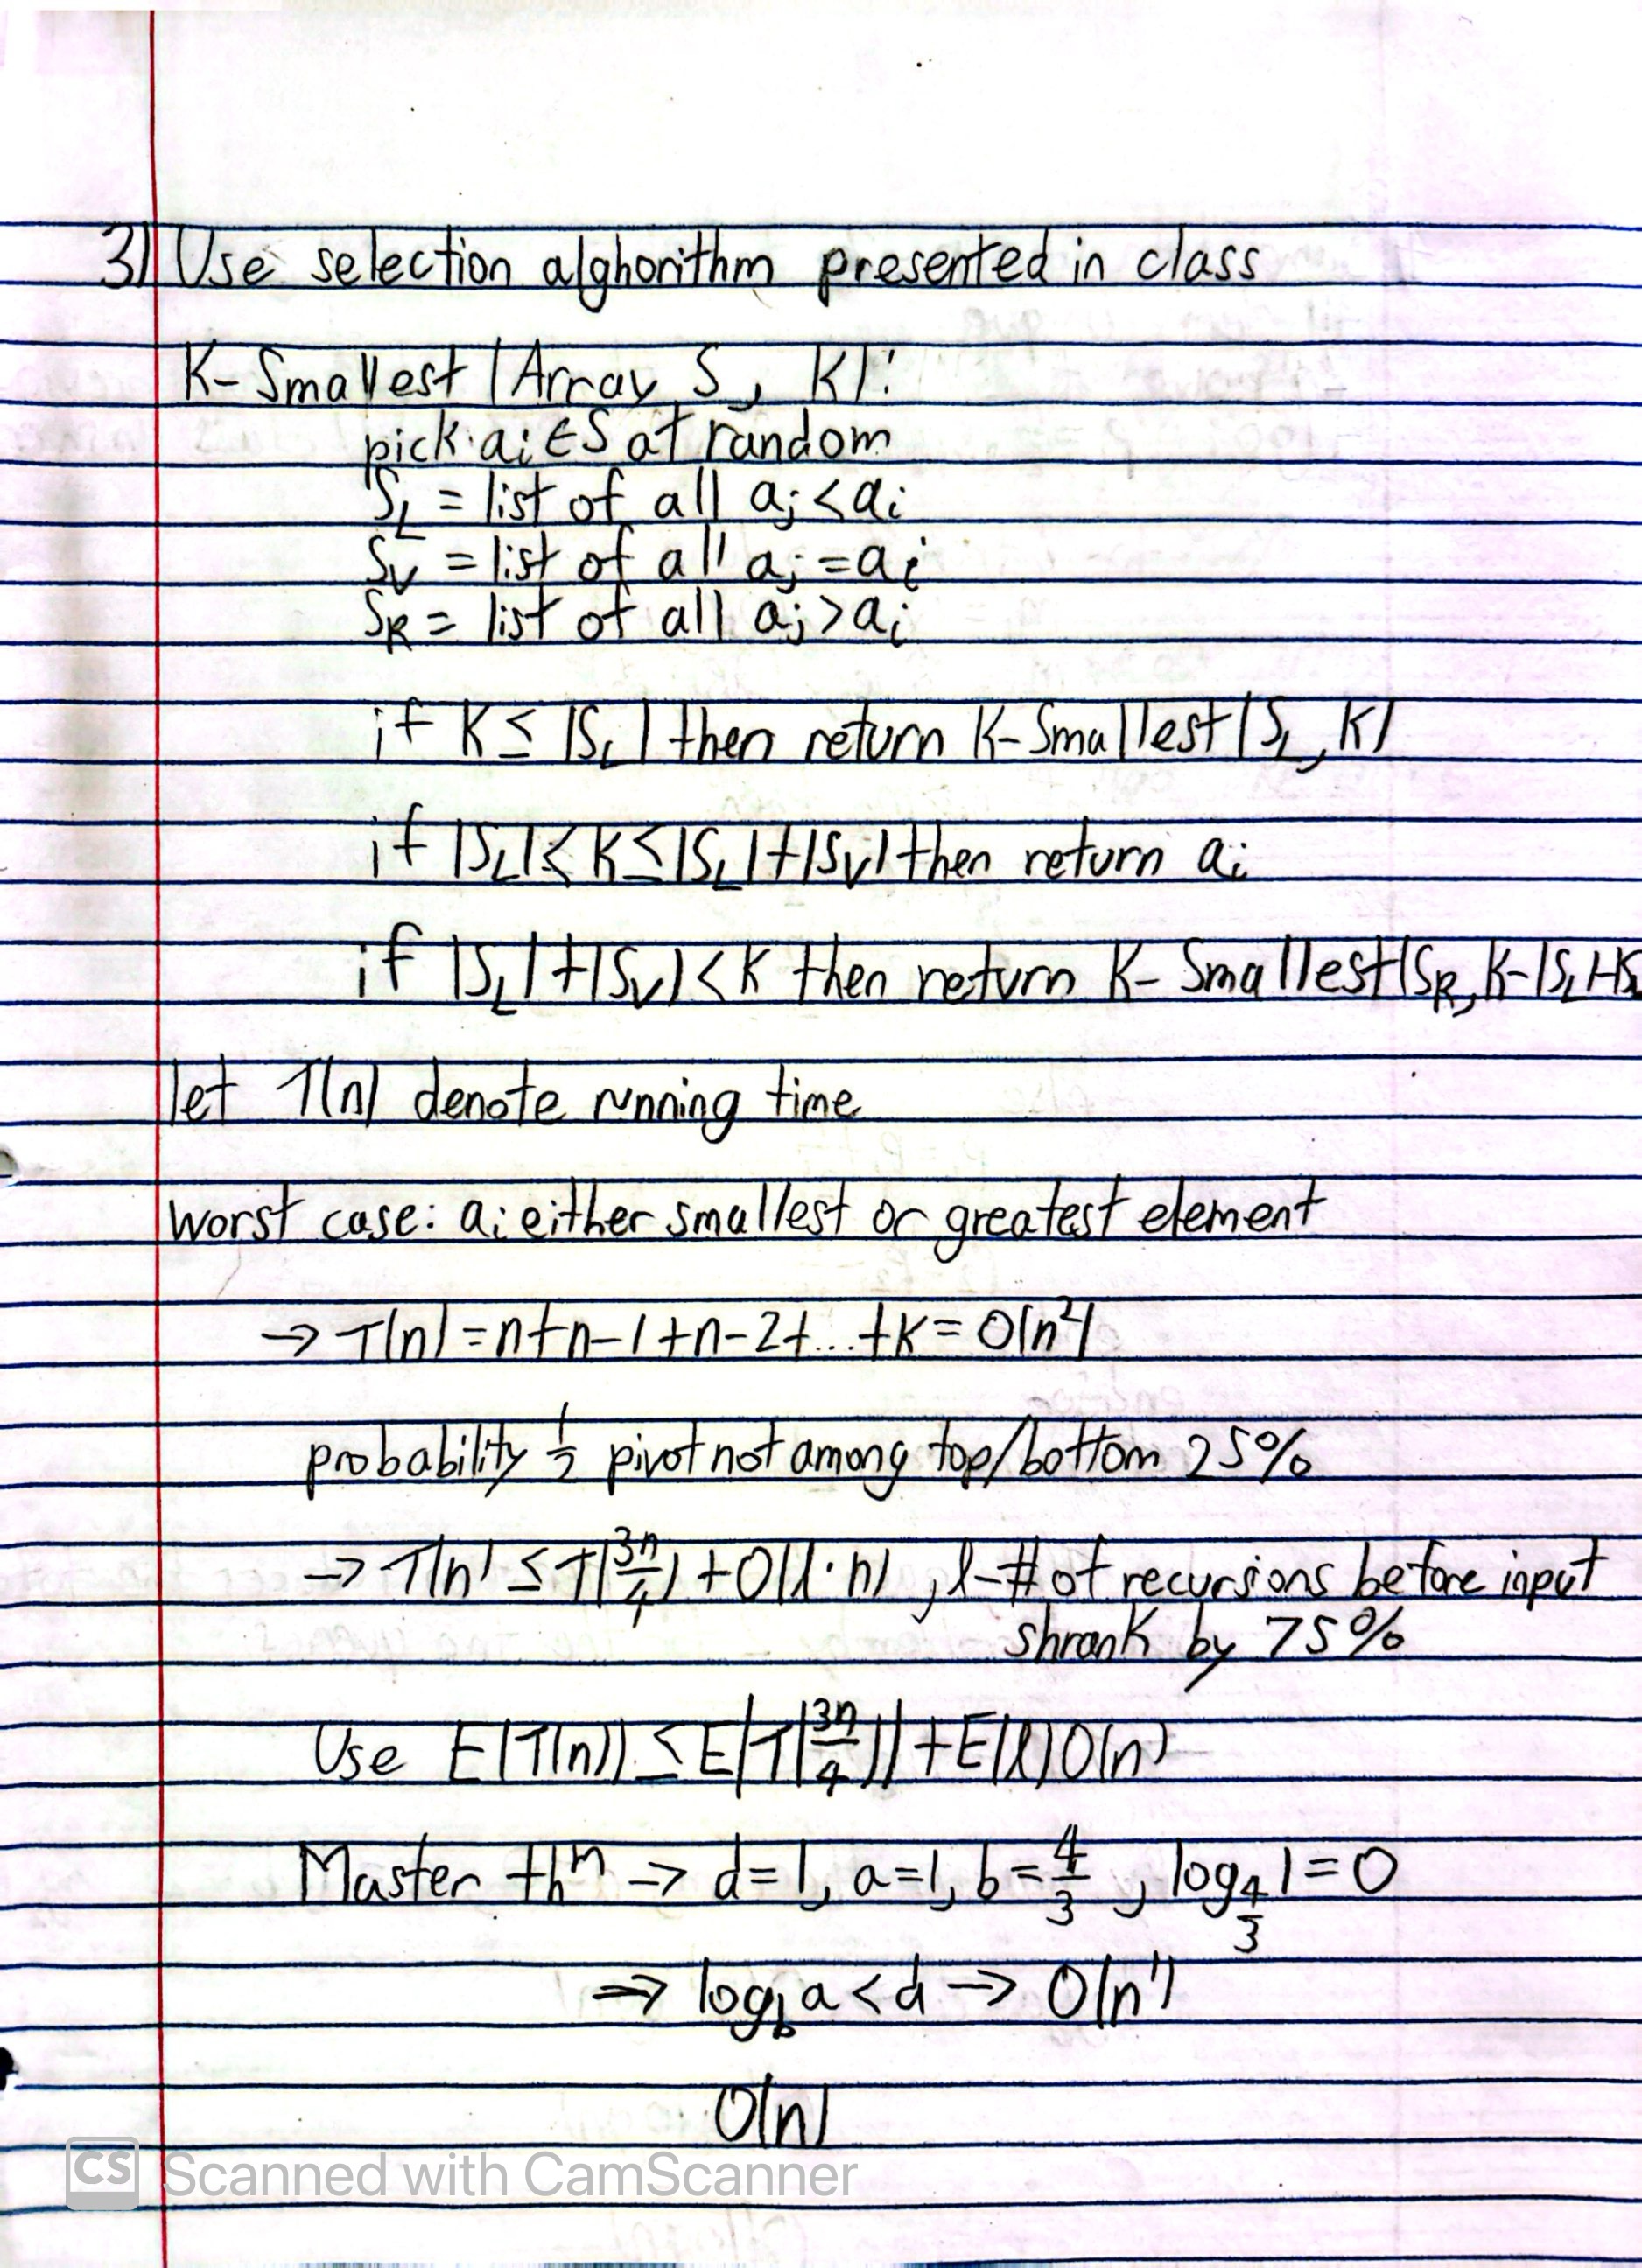 3) Use selection alghorithm presented in class
K-Smallest (Array S, K):
pick ai ∈ S at random
S_L = list of all aj < ai
S_V = list of all aj = ai
S_R = list of all aj > ai
if K ≤ |S_L| then return K-Smallest(S_L, K)
if |S_L| < K ≤ |S_L| + |S_V| then return ai
if |S_L| + |S_V| < K then return K-Smallest(S_R, K-|S_L|-|S
let T(n) denote running time
worst case: ai either smallest or greatest element
→ T(n) = n+n-1+n-2+...+K = O(n²)
probability 1/2 pivot not among top/bottom 25%
→ T(n) ≤ T(3n/4) + O(l·n), l-# of recursions before input
shrank by 75%
Use E(T(n)) ≤ E(T(3n/4)) + E(l)O(n)
Master thⁿ → d=1, a=1, b=4/3, log_4/3 1=0
⇒ log_b a < d → O(n¹)
O(n)
CS Scanned with CamScanner